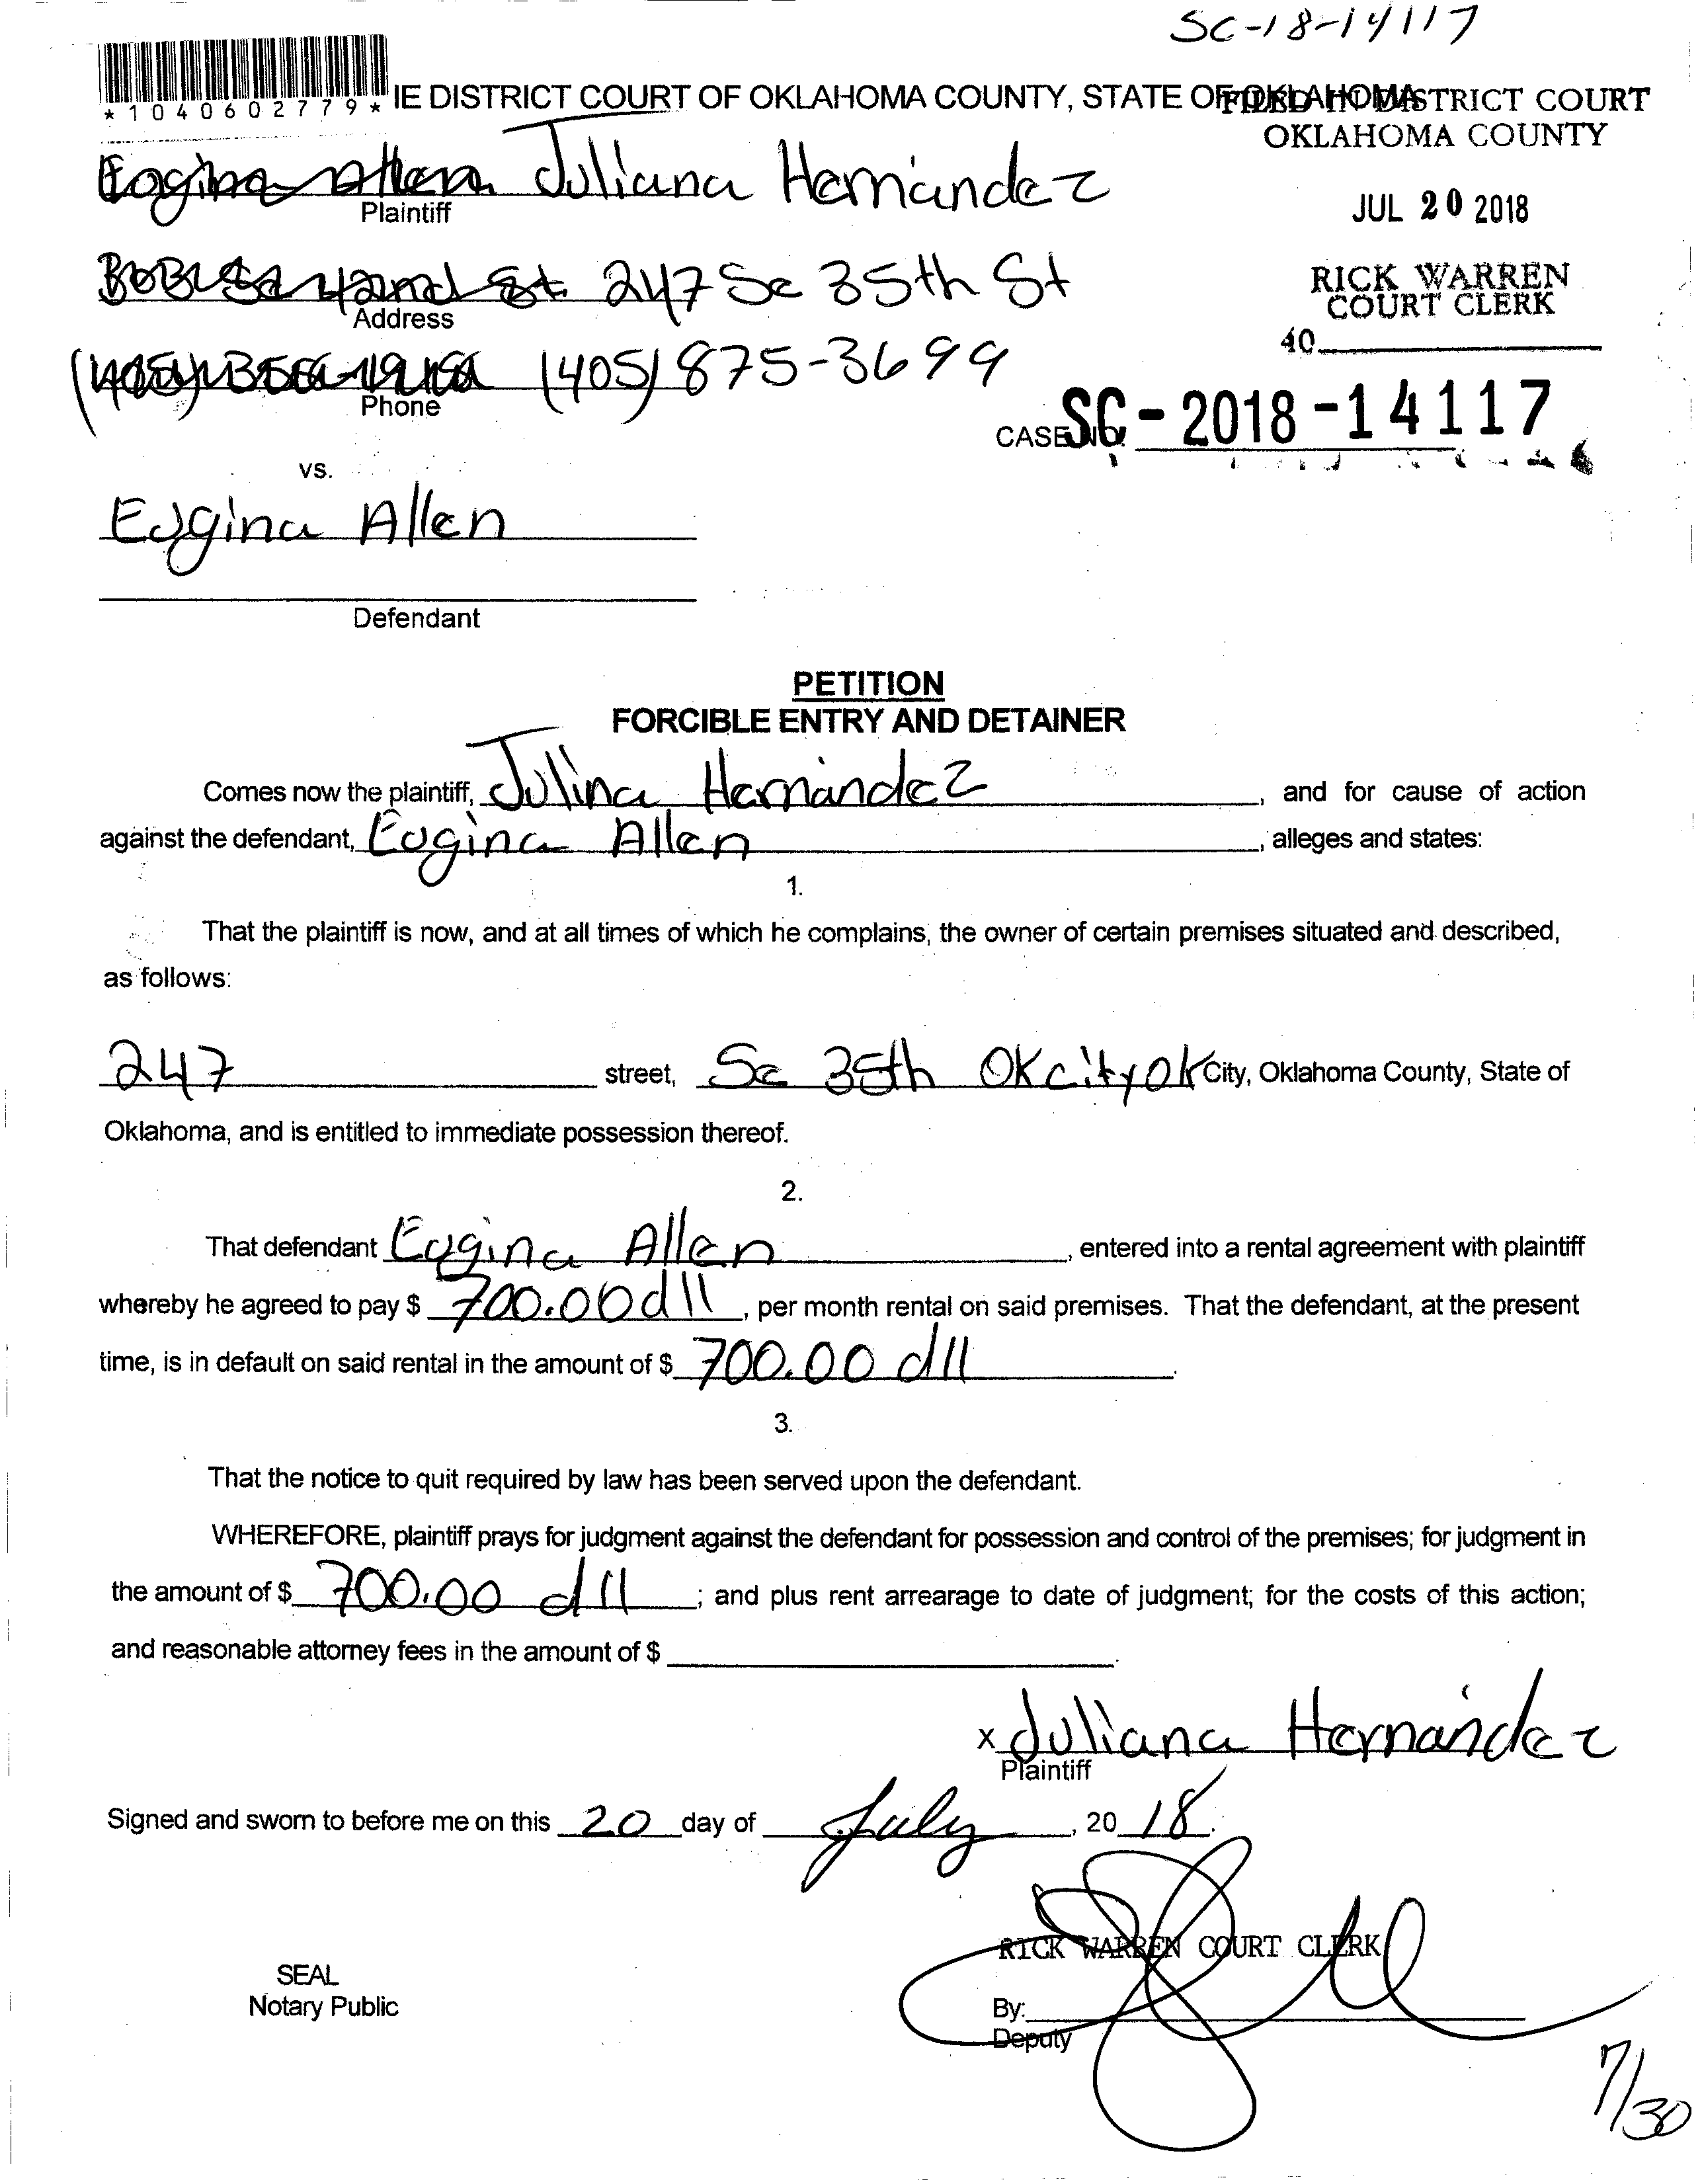 SC-18-14117
*1040602779*
IE DISTRICT COURT OF OKLAHOMA COUNTY, STATE OF OKLAHOMA
FILED IN DISTRICT COURT
OKLAHOMA COUNTY
JUL 20 2018
RICK WARREN
COURT CLERK
40
Eugina Allen Juliana Hernandez
Plaintiff
247 Se 35th St
Address
(405) 875-3699
Phone
CASE NO. SC-2018-14117
vs.
Eugina Allen
Defendant
PETITION
FORCIBLE ENTRY AND DETAINER
Comes now the plaintiff, Julina Hernandez, and for cause of action
against the defendant, Eugina Allen, alleges and states:
1.
That the plaintiff is now, and at all times of which he complains, the owner of certain premises situated and described,
as follows:
247 street, Se 35th OK city OK City, Oklahoma County, State of
Oklahoma, and is entitled to immediate possession thereof.
2.
That defendant Eugina Allen, entered into a rental agreement with plaintiff
whereby he agreed to pay $ 700.00 dll, per month rental on said premises. That the defendant, at the present
time, is in default on said rental in the amount of $ 700.00 dll.
3.
That the notice to quit required by law has been served upon the defendant.
WHEREFORE, plaintiff prays for judgment against the defendant for possession and control of the premises; for judgment in
the amount of $ 700.00 dll; and plus rent arrearage to date of judgment; for the costs of this action;
and reasonable attorney fees in the amount of $
x Juliana Hernandez
Plaintiff
Signed and sworn to before me on this 20 day of July, 2018.
RICK WARREN COURT CLERK
SEAL
Notary Public
By:
Deputy
7/30